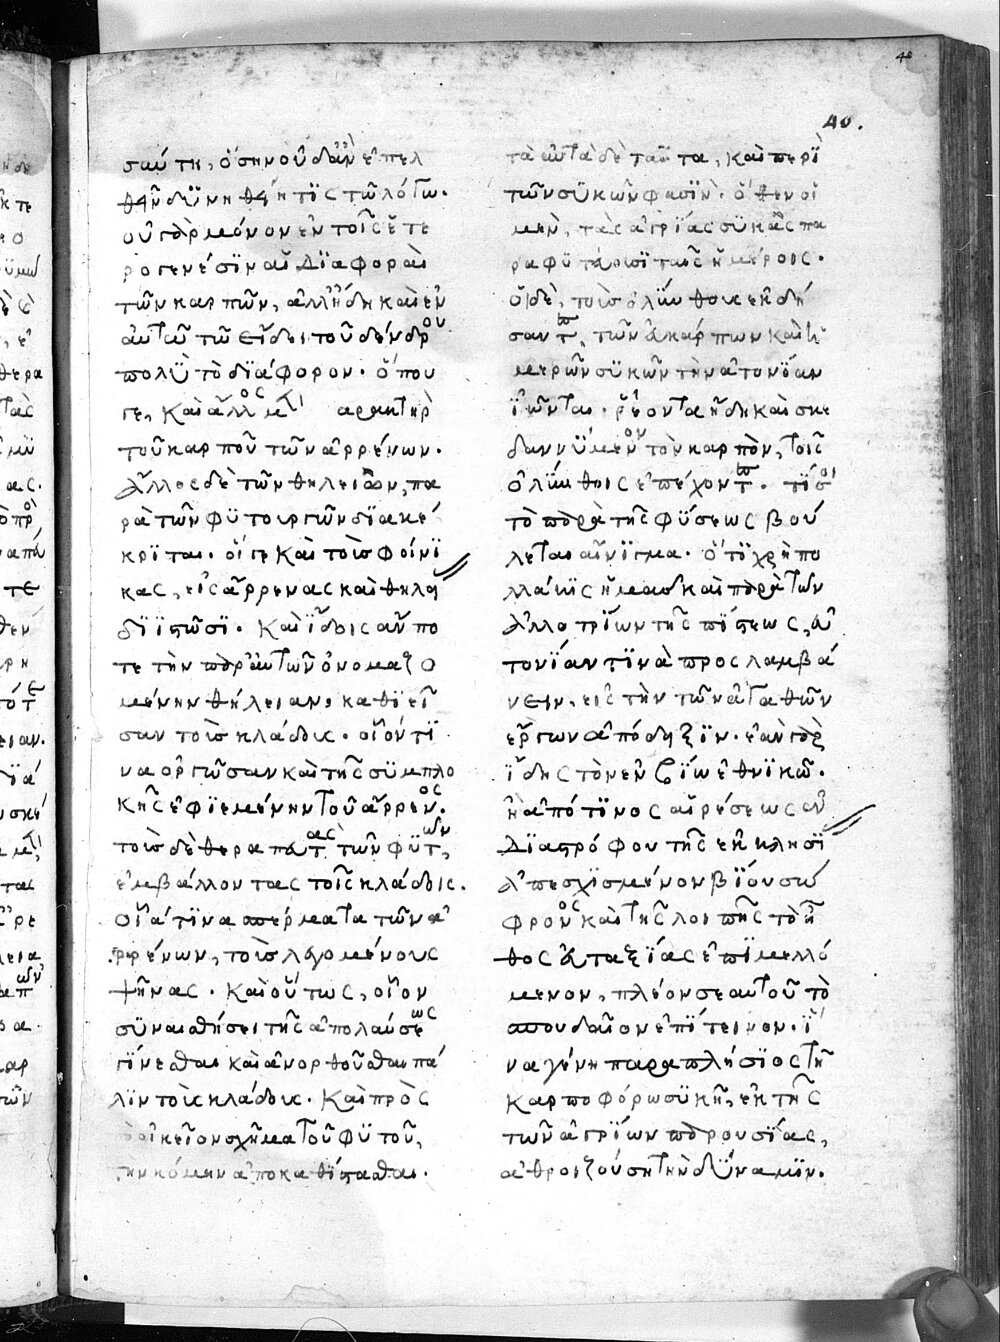 40
40.
σαύτη, ὅση νοῦ δἂν ἐπελ
θῆν δϋνηθῇ τῖς τῶ λόγω.
οὐ γὰρ μόνον ἐν τοῖς ἑτε
ρογενέσϊν αἱ διαφοραὶ
τῶν καρπῶν, ἀλλήδη καὶ ἐν
αὐτῶ τῶ εἴδει τοῦ δένδρου
πολϋ τὸ διάφορον. ὅπου
γε, καὶ ἄλλος μὲν χαρακτὴρ
τοῦ καρποῦ τῶν ἀρρένων.
ἄλλος δὲ τῶν θηλειῶν, πα
ρὰ τῶν φϋτουργῶν δϊακέ
κρϊται. οἵ γε καὶ τοὺς φοίνϊ
κας, εἰς ἄρρενας καὶ θηλεί
δϊϊστῶσϊ. καὶ ἴδοις ἄν πο
τε τὴν παρ' αὐτῶν ὀνομαζο
μένην θήλειαν, καθϊεῖ
σαν τοὺς κλάδους. οἷόν τϊ
να ὀργῶσαν καὶ τῆς σϋμπλο
κῆς ἐφϊεμένην τοῦ ἄρρενος.
τοὺς δὲ θεραπευτὰς τῶν φϋτῶν,
ἐμβάλλοντας τοῖς κλάδοις.
οἷά τϊνα σπέρματα τῶν ἀ
ρρένων, τοὺς λεγομένους
ψῆνας. καὶ οὕτως, οἷον
σϋναισθήσει τῆς ἀπολαύσεως
γίνεσθαι καὶ ἀνορθοῦσθαι πά
λϊν τοὺς κλάδους. καὶ πρὸς
τὸ οἰκεῖον σχῆμα τοῦ φϋτοῦ,
τὴν κόμην ἀποκαθίστασθαι.
τὰ αὐτὰ δὲ ταῦτα, καὶ περὶ
τῶν σϋκῶν φασϊν. ὅθεν οἱ
μὲν, τὰς ἀγρίας σϋκᾶς πα
ραφϋτεύουσι ταῖς ἡμέροις.
οἱ δὲ, τοὺς ὀλύνθους ἐκδή
σαντες, τῶν εὐκάρπων καὶ ἡ
μερῶν σϋκῶν τὴν ἀτονϊαν
ϊῶνται. ῥέοντα ἤδη καὶ σκε
δαννϋμενον τὸν καρπὸν, τοῖς
ὀλύνθοις ἐπέχοντες. τϊ σοι
τὸ παρὰ τῆς φϋσεως βού
λεται αἴνϊγμα. ὅτϊ χρὴ πο
λλάκις ἡμᾶς καὶ παρὰ τῶν
ἀλλοτρίων τῆς πίστεως, εὐ
τονϊαν τϊνὰ προσλαμβά
νειν, εἰς τὴν τῶν ἀγαθῶν
ἔργων ἀπόδηξϊν. ἐὰν γὰρ
ἴδης τὸν ἐν βίω ἐθνϊκῶ.
ἢ ἀπό τϊνος αἱρέσεως ἐν
δϊαστρόφου τῆς ἐκκλησϊ
ἀπεσχϊσμένον βϊου σώ
φρονος καὶ τῆς λοιπῆς τὸ ἦ
θος εὐταξίας ἐπϊμελλό
μενον, πλέον σεαυτοῦ τὸ
σπουδαῖον ἐπϊτεινον. ἵ
να γένη παραπλήσϊος τῆ
καρποφόρω σϋκῆ, ἐκ τῆς
τῶν ἀγρίων παρουσίας,
ἀθροιζούση τὴν δϋναμϊν.